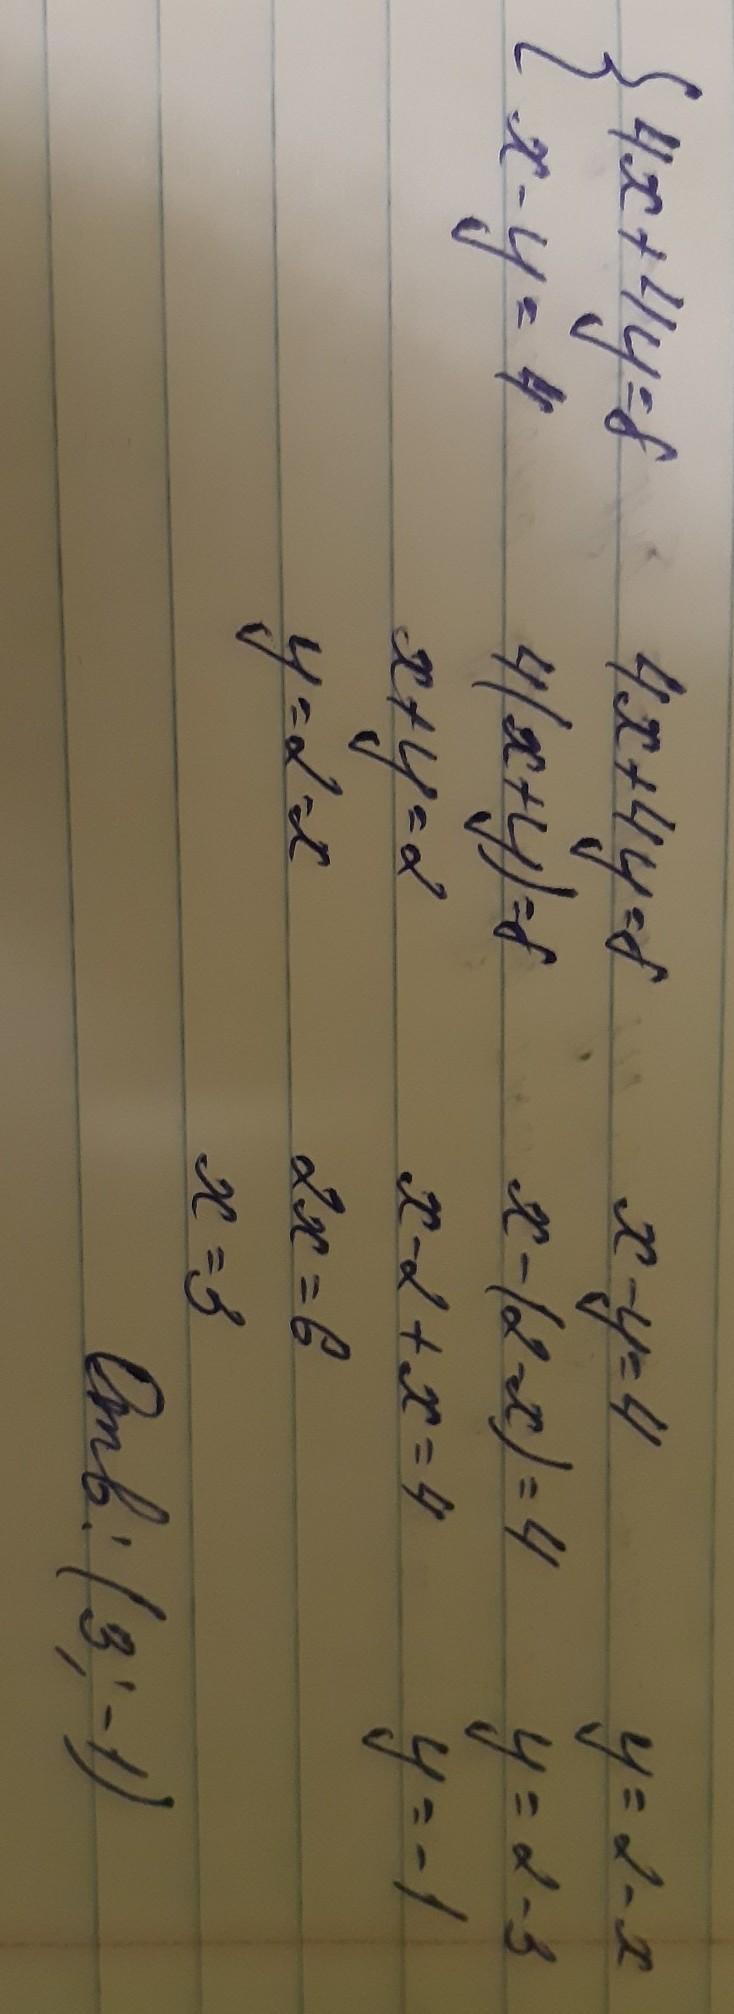 { 4x+4y=8
x-y=4
4x+4y=8
4(x+y)=8
x+y=2
y=2-x
x-y=4
x-(2-x)=4
x-2+x=4
2x=6
x=3
y=2-x
y=2-3
y=-1
Отв.: (3;-1)